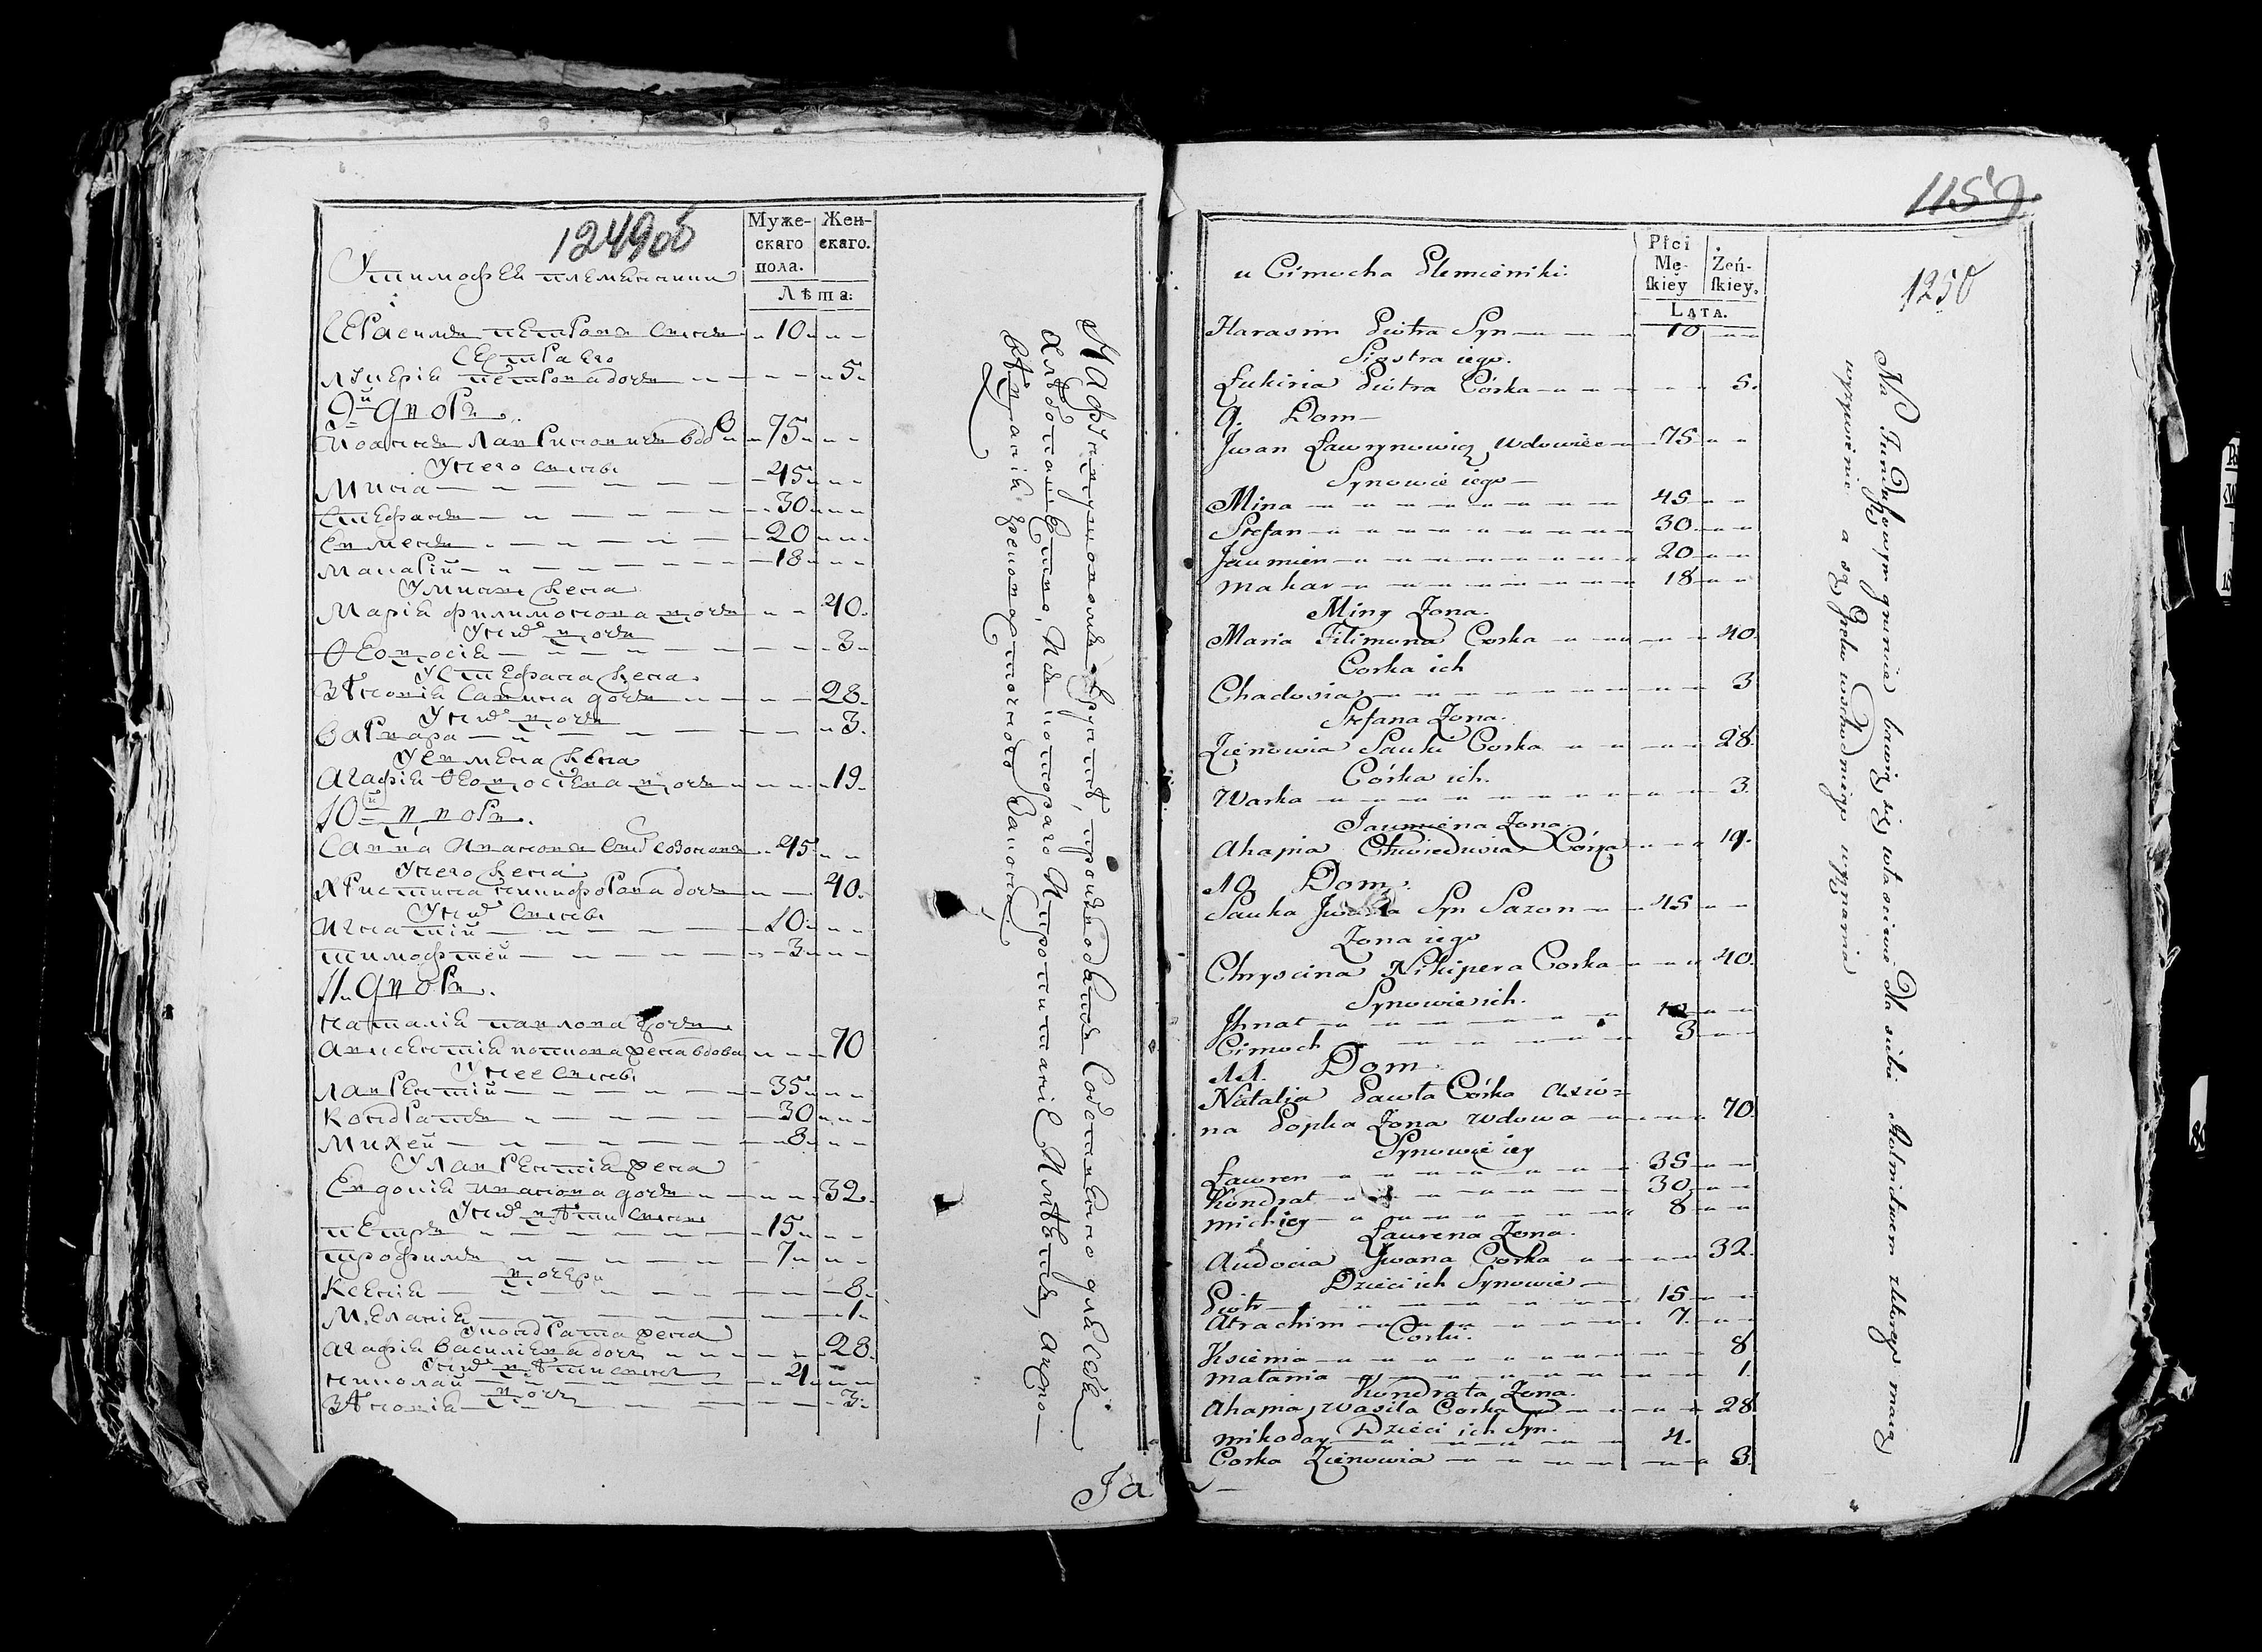 1249об
Муже-
скаго
пола.
Жен-
скаго.
Лѣта:
Утимофея племянники
Герасимъ петровъ сынъ 10
Сестра его
лукерія петрова дочь 5
9й дворъ.
Иоаннъ лавриновичъ вдов 75
Унего сыны
Мина 45
стефанъ 30
евменъ 20
макарій 18
Умины жена
Марія филимонова дочь 40
Уних дочь
Ѳеодосія 3
Устефана жена
Зѣновія савина дочь 28
Уних дочь
варвара 3
Уевмена жена
агафія Ѳеодосіева дочь 19
10й дворъ.
Савва ивановъ сынъ созоновъ 45
Унего жена
христина никифорова дочь 40
Уних сыны
игнатій 10
тимофтей 3
11. дворъ.
наталія павлова дочь
70
Унее сыны
лаврентій 35
кондратъ 30
Михей 8
Улаврентія жена
евдокія иванова дочь 32
Уних дѣти сыны
петръ 15
трофимъ 7
дочери
ксенія 8
Меланія 1
Укондрата жена
агафія василіева дочь 28
Уних дѣти сынъ
николай 4
дочь
Зѣновія 3
Ja
1157
1250
Płci
Mę-
ſkiey
Żeń-
ſkiey.
LATA.
u Cimocha Plemieniki
Harasim Piotra Syn 10
Siostra iego.
Łukiria Piotra Córka 5.
9. Dom
Jwan Ławrynowicz wdowiec 75
Synowie iego
Mina 45
Stefan 30
Jaumien 20
makar 18
Miny Zona.
Maria Filimona Corka 40
Corka ich
Chadosia 3
Stefana Zona.
Zienowia Sauki Corka 28.
Córka ich.
Warka 3.
Jaumiena Zona.
Ahapia Chwiedosia Córka 19.
10 Dom.
Sauka Jwana Syn Sazon 45
Zona iego
Chryscina Nikipera Corka 40.
Synowie ich.
Jhnat 10
Cimoch 3
11. Dom.
Natalja Pawła Córka
na Popka Zona wdowa 70.
Synowie iey
Ławren 35
Kondrat 30
michiey 8
Ławrena Zona.
Audocia Jwana Corka 32.
Dzieci ich Synowie
Piotr 15
Atrachim 7.
Corki.
Ksienia 8
matania 1.
Kondrata Zona.
Ahapia Wasila Corka 28
Dzieci ich Syn.
mikołay 4.
Corka Zienowia 3.